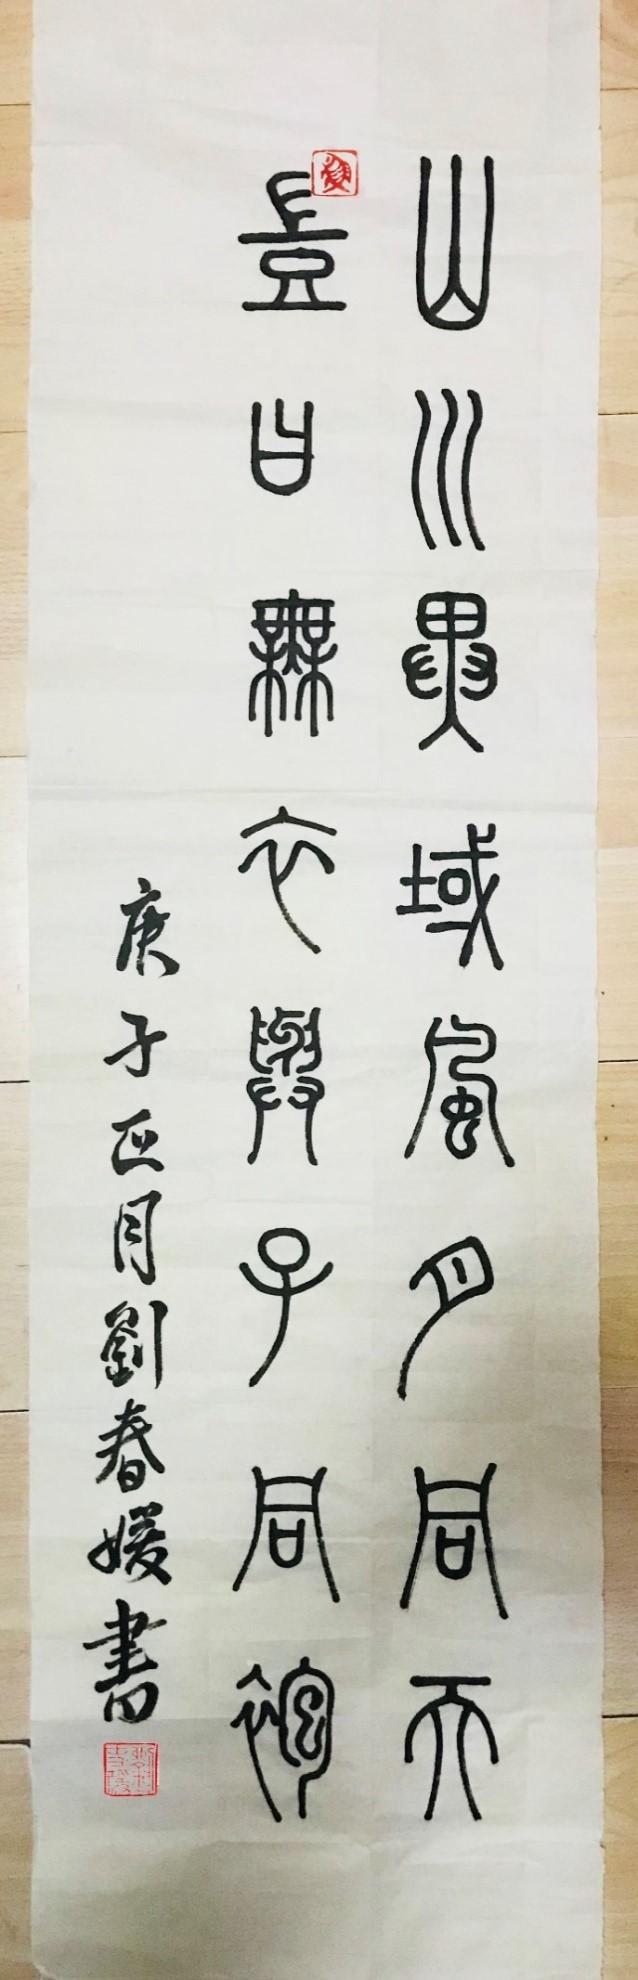 山川異域風月同天
豈曰無衣與子同袍
庚子正月劉春媛書